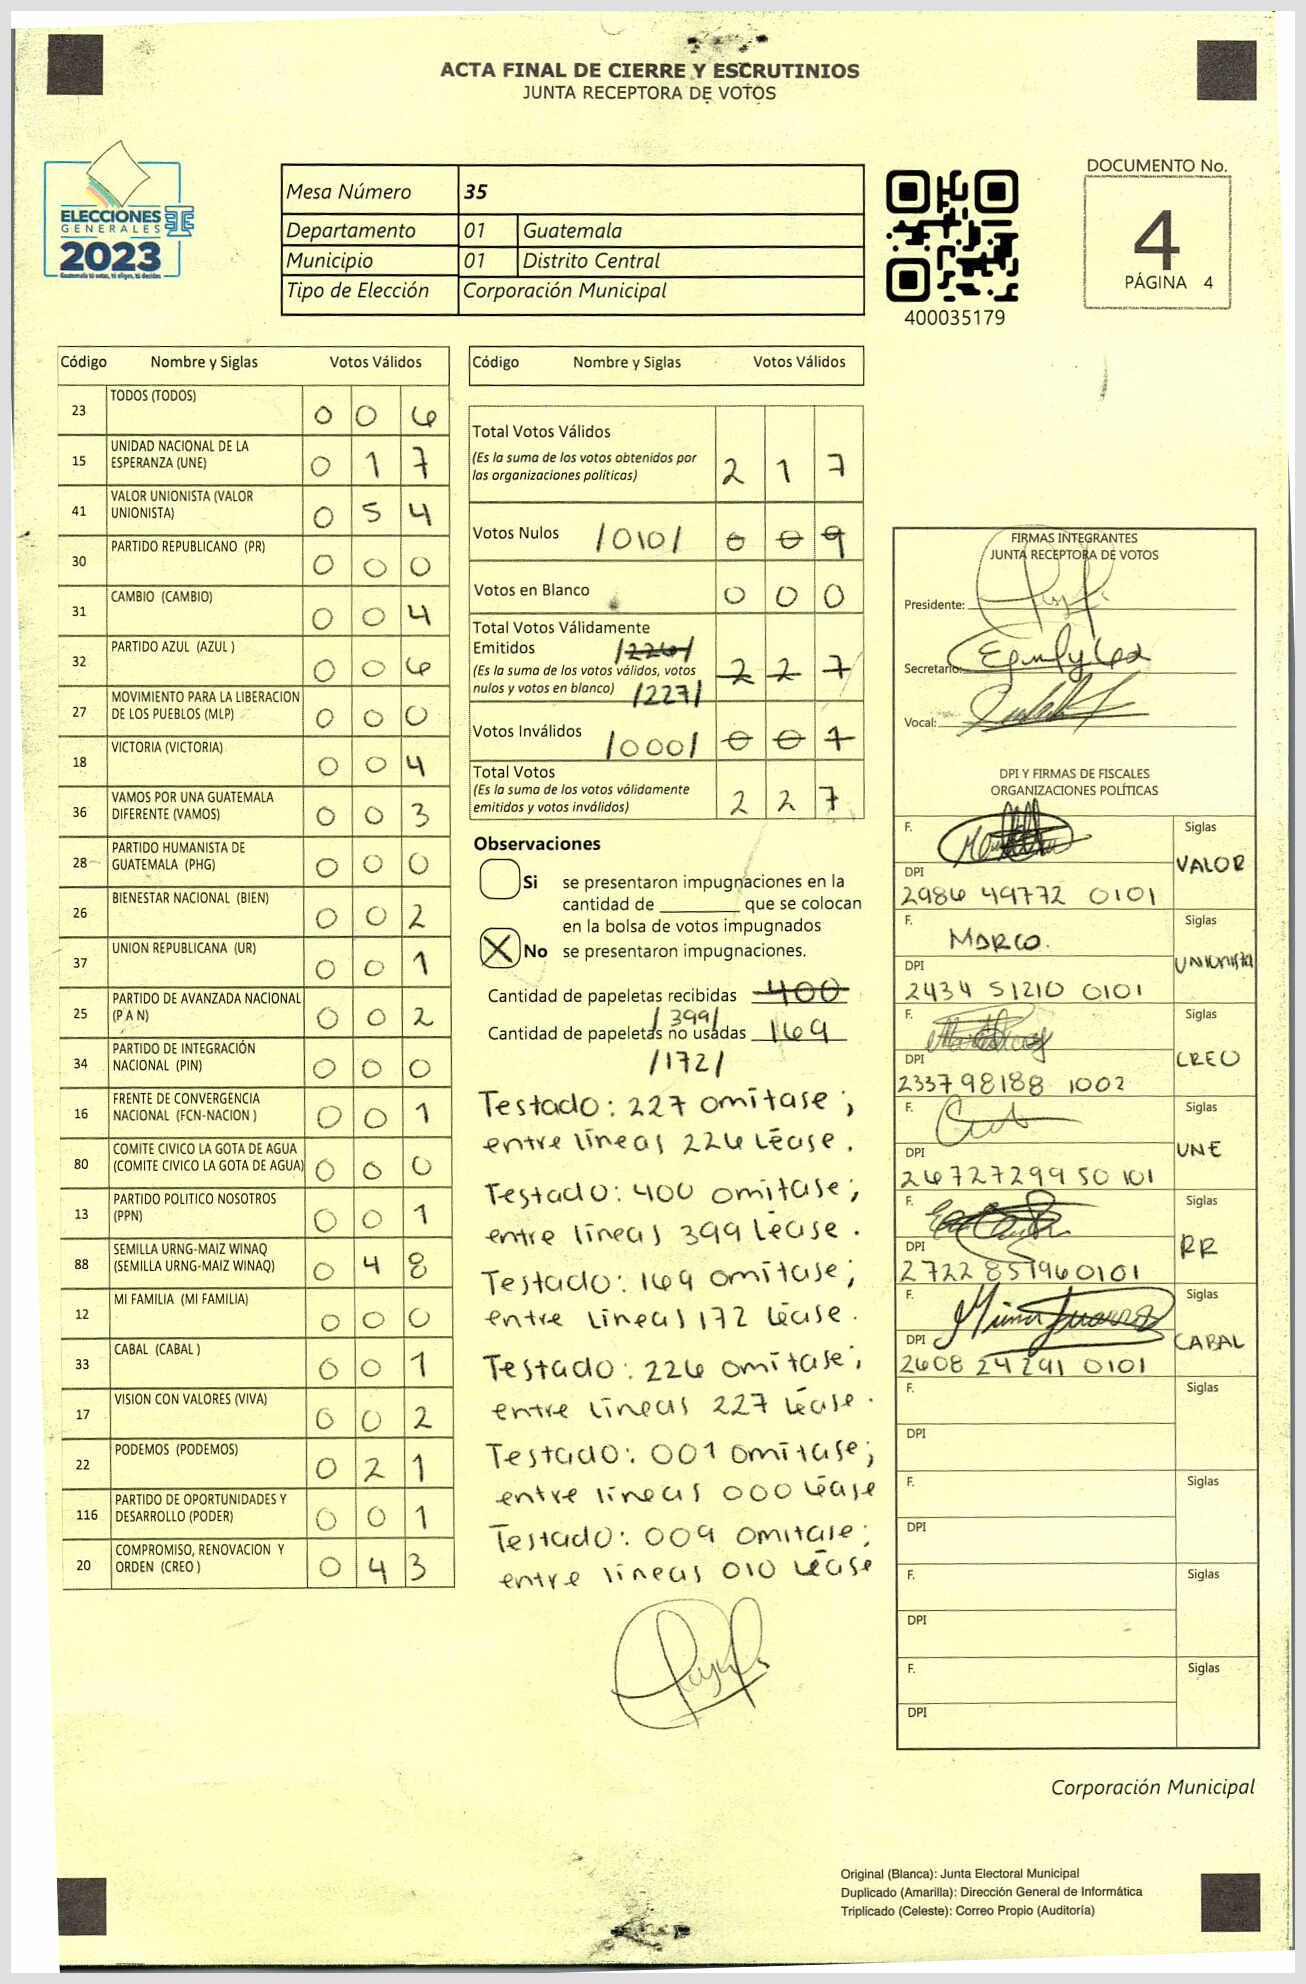 ACTA FINAL DE CIERRE Y ESCRUTINIOS
JUNTA RECEPTORA DE VOTOS
ELECCIONES
GENERALES
2023
Guatemala tú votas, tú eliges, tú decides
Mesa Número 35
Departamento 01 Guatemala
Municipio 01 Distrito Central
Tipo de Elección Corporación Municipal
400035179
DOCUMENTO No.
4
PÁGINA 4
Código Nombre y Siglas Votos Válidos
23 TODOS (TODOS) 0 0 6
15 UNIDAD NACIONAL DE LA ESPERANZA (UNE) 0 1 7
41 VALOR UNIONISTA (VALOR UNIONISTA) 0 5 4
30 PARTIDO REPUBLICANO (PR) 0 0 0
31 CAMBIO (CAMBIO) 0 0 4
32 PARTIDO AZUL (AZUL ) 0 0 6
27 MOVIMIENTO PARA LA LIBERACION DE LOS PUEBLOS (MLP) 0 0 0
18 VICTORIA (VICTORIA) 0 0 4
36 VAMOS POR UNA GUATEMALA DIFERENTE (VAMOS) 0 0 3
28 PARTIDO HUMANISTA DE GUATEMALA (PHG) 0 0 0
26 BIENESTAR NACIONAL (BIEN) 0 0 2
37 UNION REPUBLICANA (UR) 0 0 1
25 PARTIDO DE AVANZADA NACIONAL (P A N) 0 0 2
34 PARTIDO DE INTEGRACIÓN NACIONAL (PIN) 0 0 0
16 FRENTE DE CONVERGENCIA NACIONAL (FCN-NACION ) 0 0 1
80 COMITE CIVICO LA GOTA DE AGUA (COMITE CIVICO LA GOTA DE AGUA) 0 0 0
13 PARTIDO POLITICO NOSOTROS (PPN) 0 0 1
88 SEMILLA URNG-MAIZ WINAQ (SEMILLA URNG-MAIZ WINAQ) 0 4 8
12 MI FAMILIA (MI FAMILIA) 0 0 0
33 CABAL (CABAL ) 0 0 1
17 VISION CON VALORES (VIVA) 0 0 2
22 PODEMOS (PODEMOS) 0 2 1
116 PARTIDO DE OPORTUNIDADES Y DESARROLLO (PODER) 0 0 1
20 COMPROMISO, RENOVACION Y ORDEN (CREO ) 0 4 3
Código Nombre y Siglas Votos Válidos
Total Votos Válidos
(Es la suma de los votos obtenidos por
las organizaciones políticas) 2 1 7
Votos Nulos /010/ 0 0 9
Votos en Blanco 0 0 0
Total Votos Válidamente
Emitidos /226/
(Es la suma de los votos válidos, votos 2 2 7
nulos y votos en blanco) /227/
Votos Inválidos /000/ 0 0 1
Total Votos
(Es la suma de los votos válidamente
emitidos y votos inválidos) 2 2 7
Observaciones
Si se presentaron impugnaciones en la
cantidad de ________ que se colocan
en la bolsa de votos impugnados
X No se presentaron impugnaciones.
Cantidad de papeletas recibidas 400
/399/
Cantidad de papeletas no usadas 169
/172/
Testado: 227 omítase;
entre líneas 226 léase.
Testado: 400 omítase;
entre líneas 399 léase.
Testado: 169 omítase;
entre líneas 172 léase.
Testado: 226 omítase;
entre líneas 227 léase.
Testado: 001 omítase;
entre líneas 000 léase
Testado: 009 omítase;
entre líneas 010 léase
FIRMAS INTEGRANTES
JUNTA RECEPTORA DE VOTOS
Presidente:
Secretario:
Vocal:
DPI Y FIRMAS DE FISCALES
ORGANIZACIONES POLÍTICAS
F. Siglas
VALOR
DPI
2986 49772 0101
F. Marco. Siglas
UNIONISTA
DPI
2434 51210 0101
F. Siglas
CREO
DPI
2337 98188 1002
F. Siglas
UNE
DPI
26727299 50101
F. Siglas
RR
DPI
2722 85196 0101
F. Siglas
CABAL
DPI
2608 24291 0101
F. Siglas
DPI
F. Siglas
DPI
F. Siglas
DPI
F. Siglas
DPI
Corporación Municipal
Original (Blanca): Junta Electoral Municipal
Duplicado (Amarilla): Dirección General de Informática
Triplicado (Celeste): Correo Propio (Auditoría)